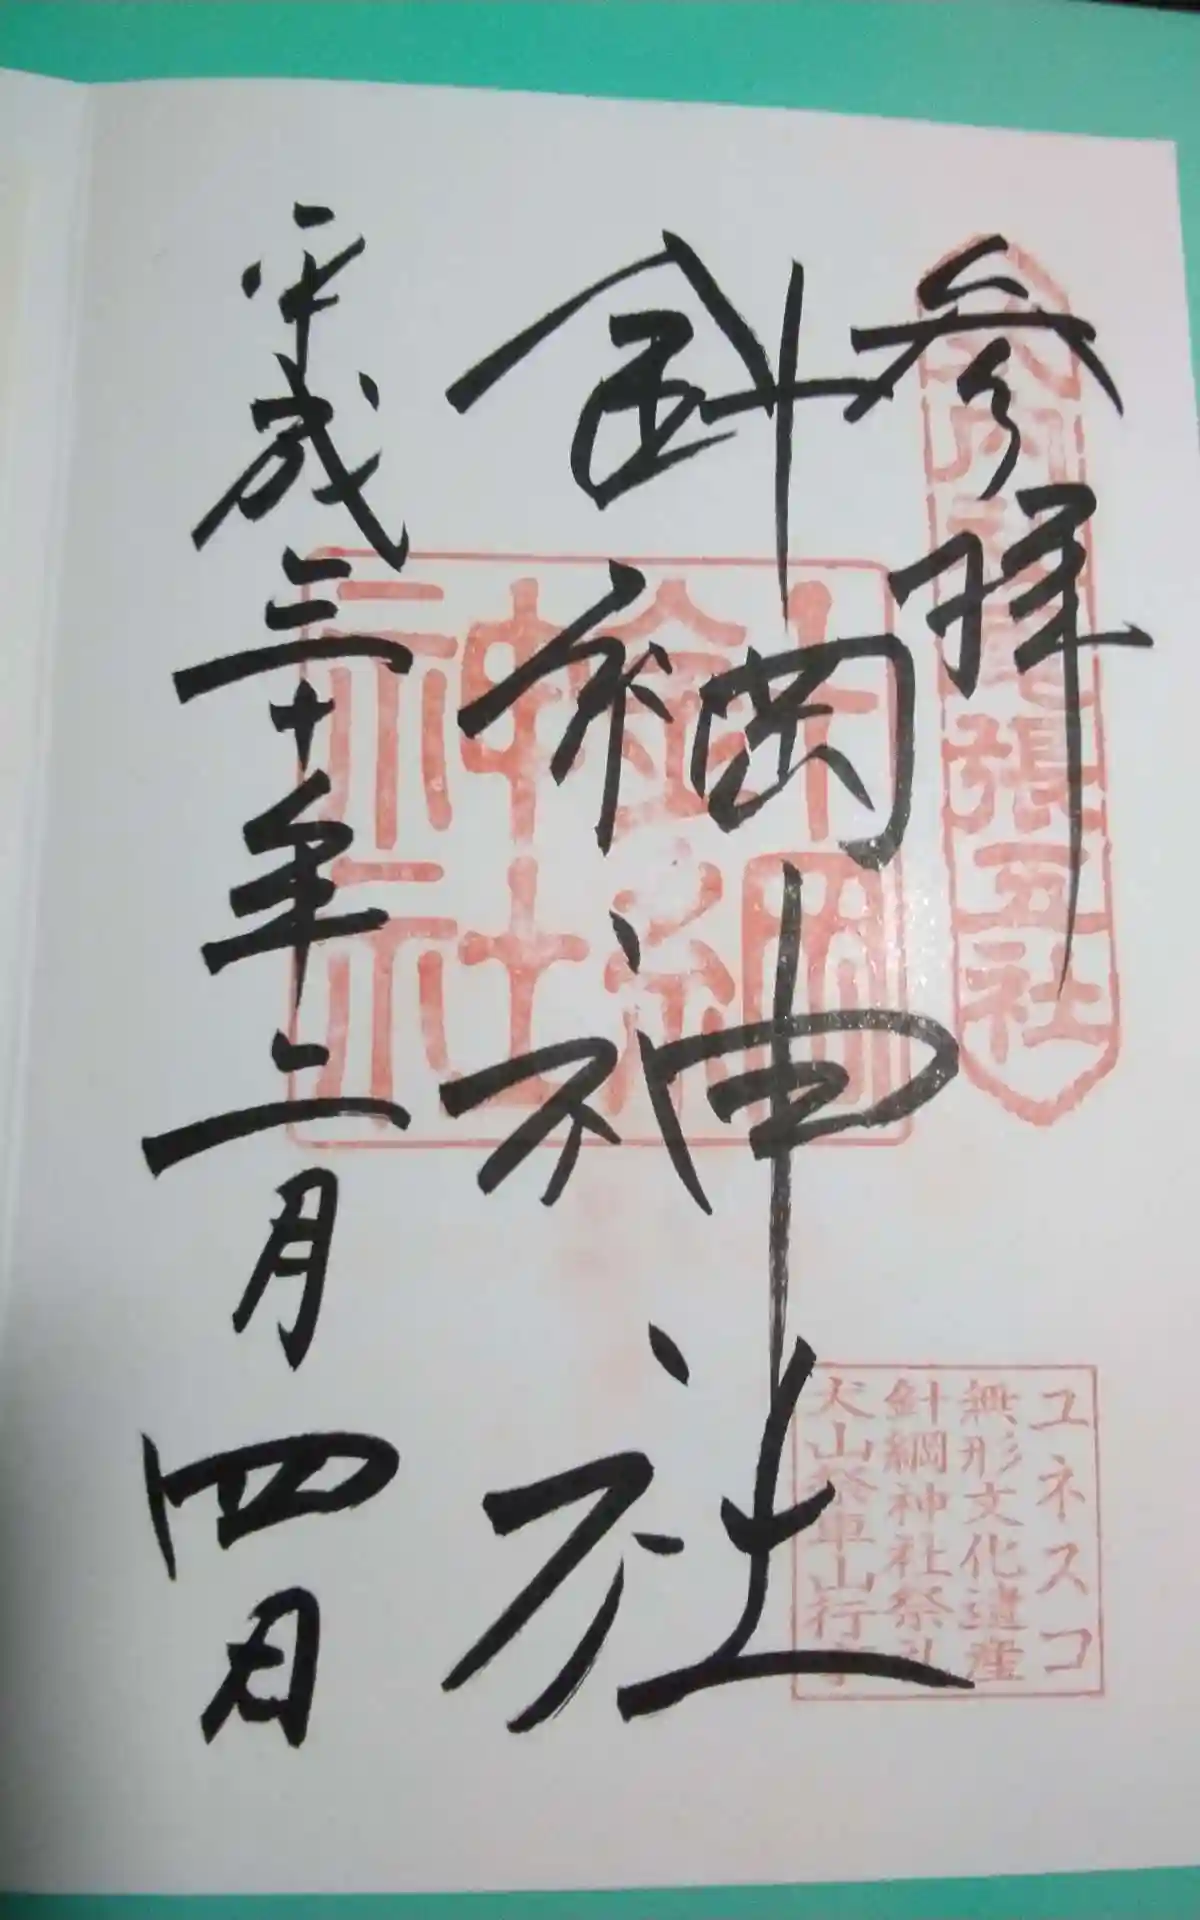 参拝
針綱神社
平成三十年二月四日
針綱
神社
尾張五社
ユネスコ
無形文化遺産
針綱神社祭礼
犬山祭車山行